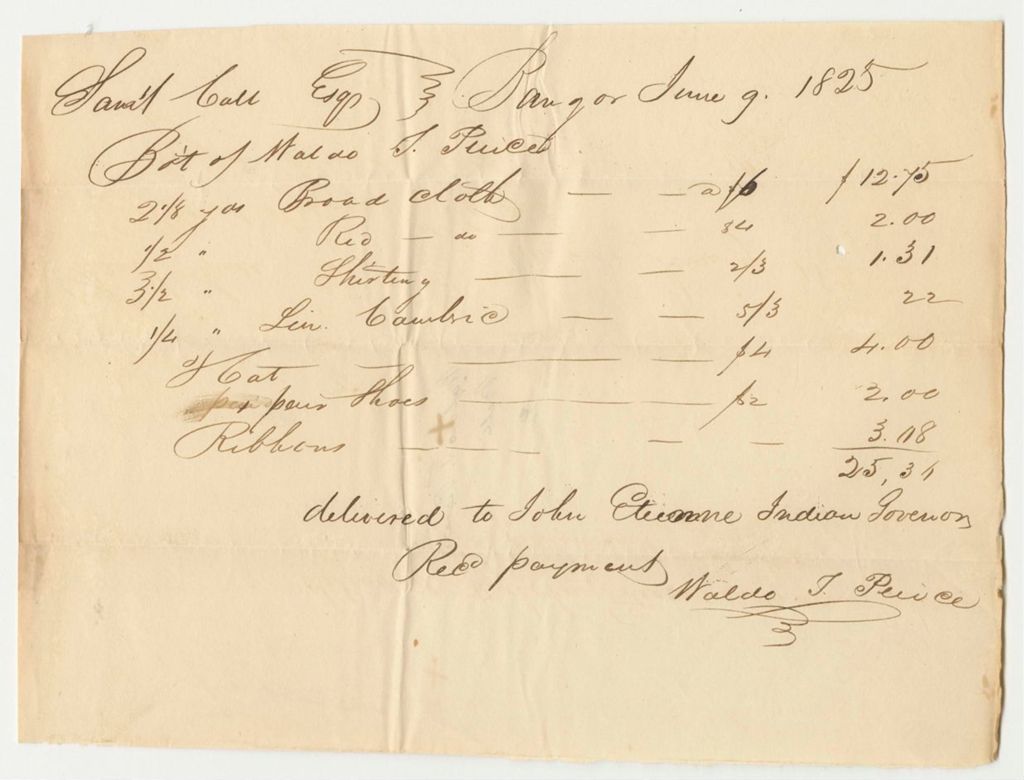 Sam'l Call Esqr Bangor June 9. 1825
Bo't of Waldo T. Peirce
2 1/8 yds Broad cloth — — a $6 $12.75
1/2 " Red — do — — $4 2.00
3 1/2 " Shirting — — 2/3 1.31
1/4 " Lin. Cambric — — 5/3 22
Hat — — — $4 4.00
pair Shoes — — $2 2.00
Ribbons — — — — — 3.18
25,34
delivered to John Etienne Indian Govenor
Recd payment
Waldo T. Peirce